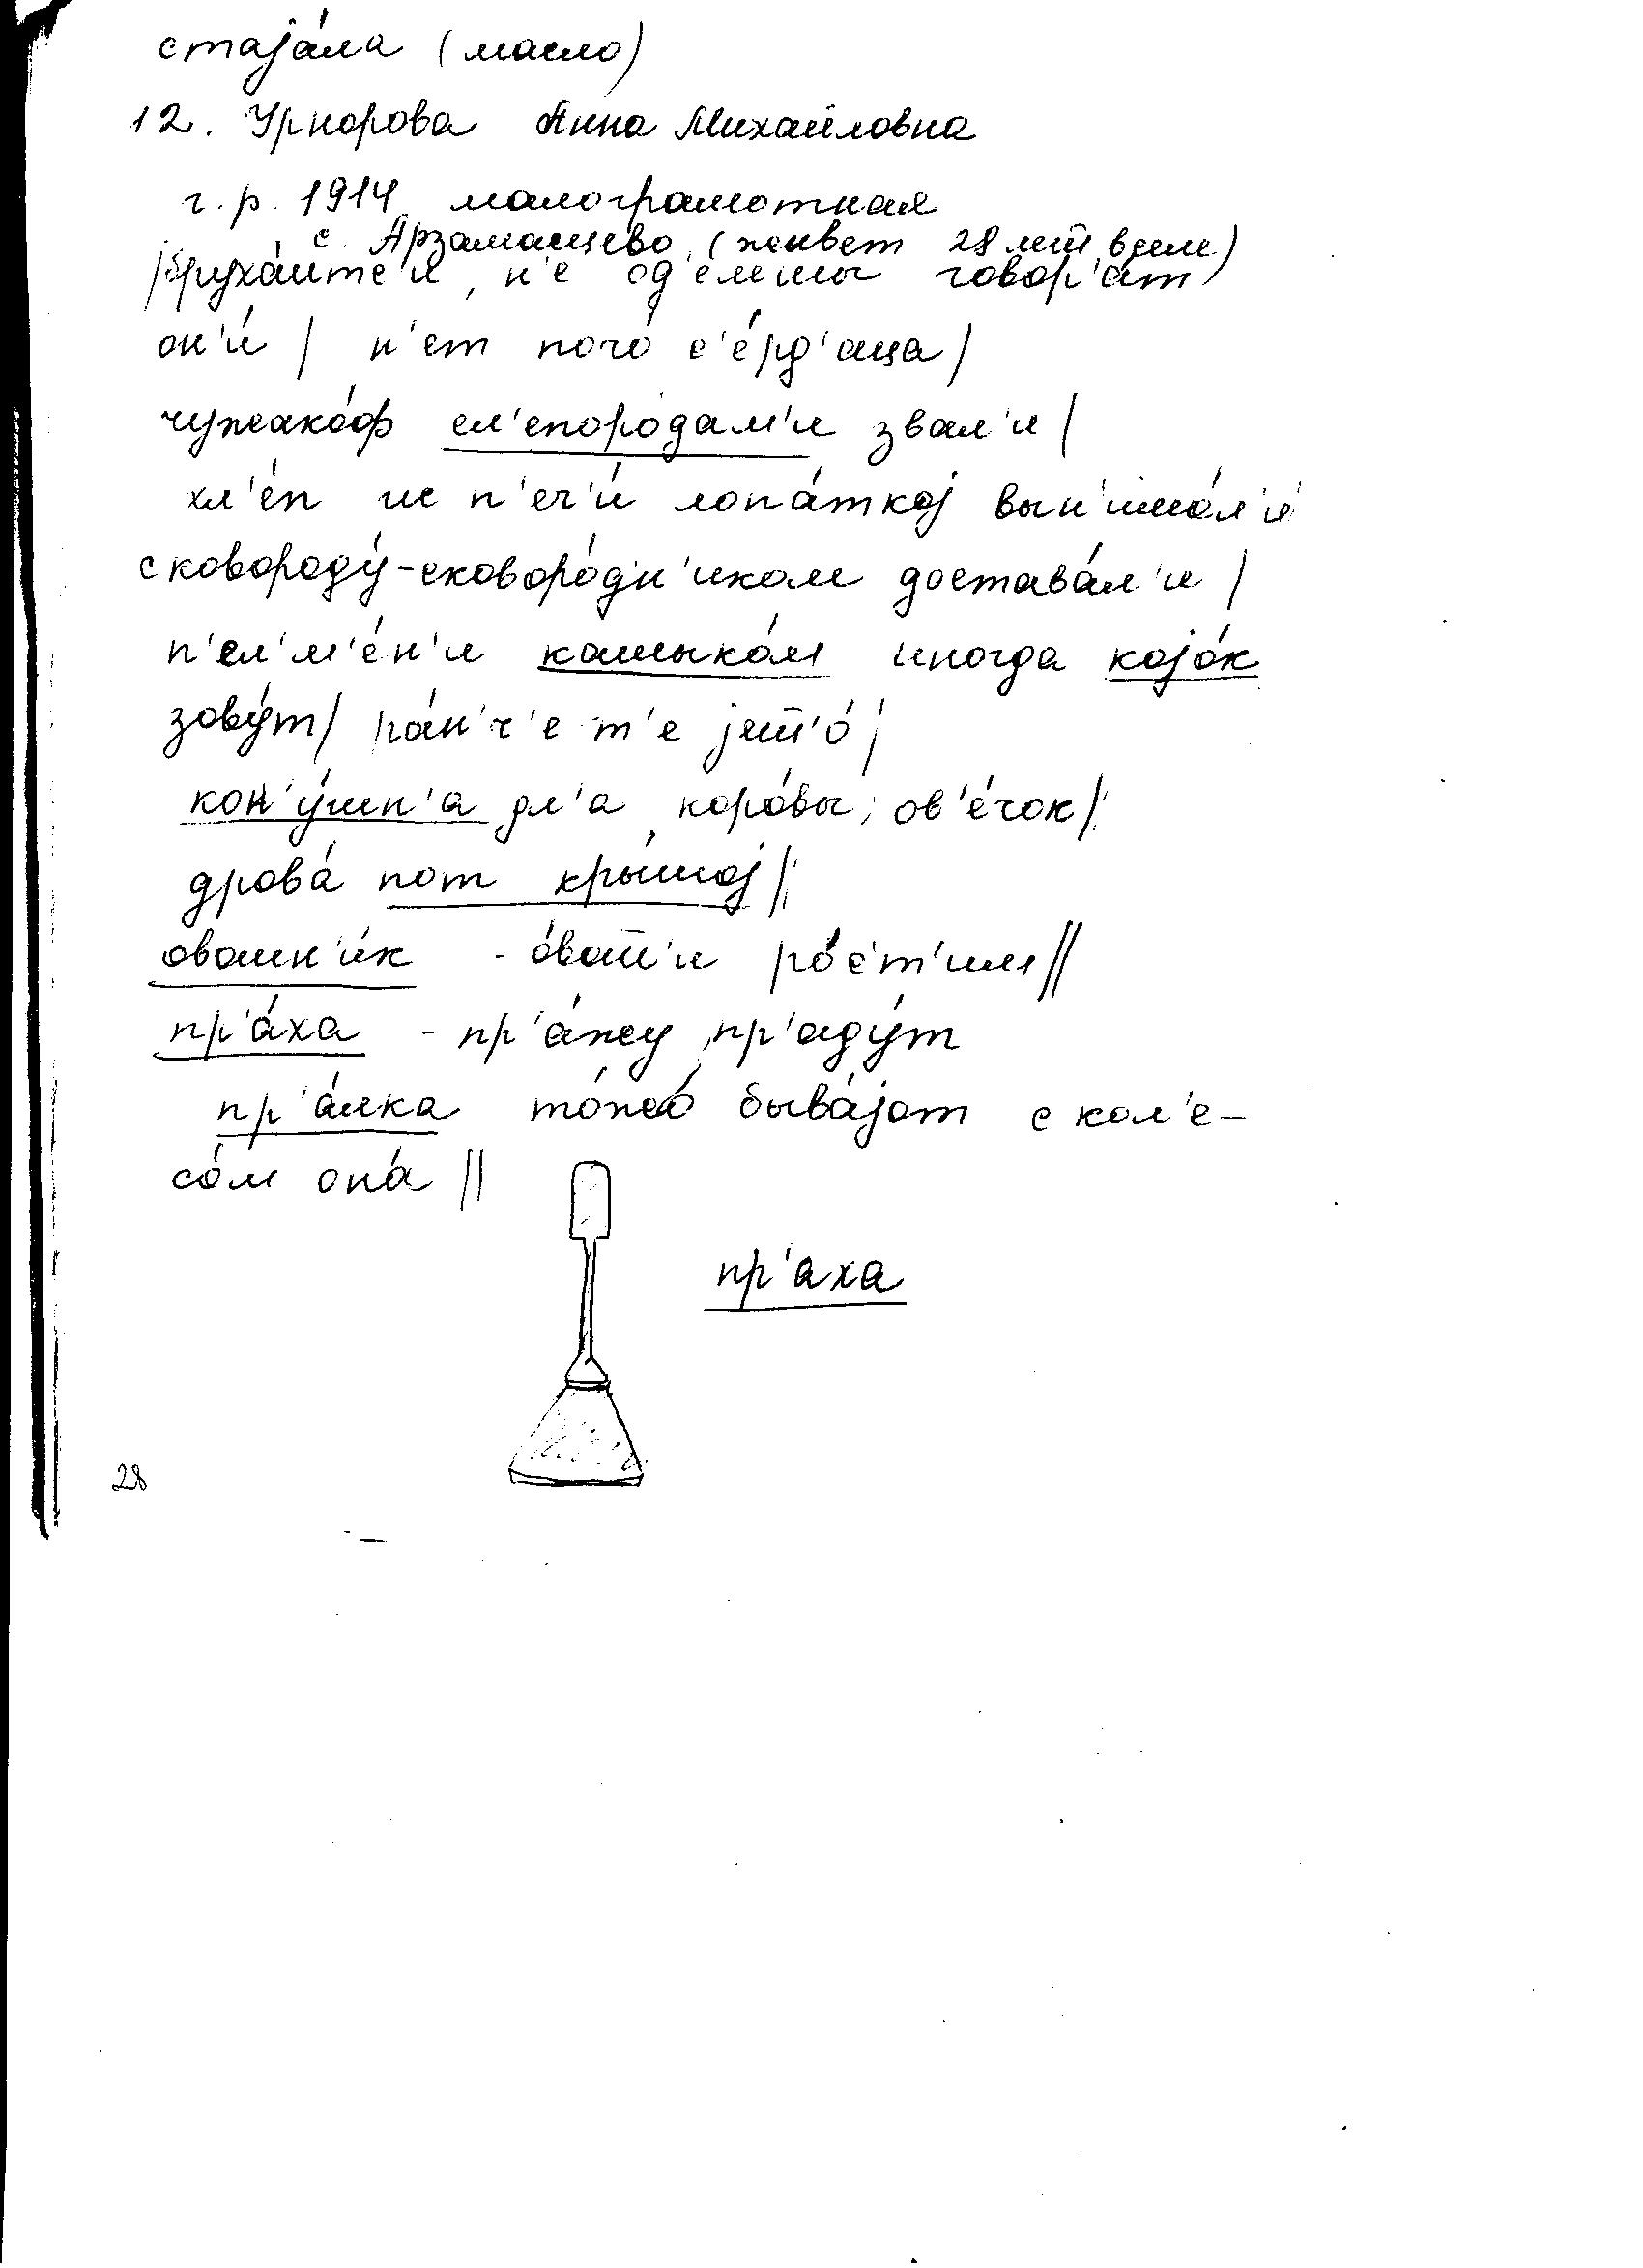 стаjа́ла (масло)
12. Урнорова Анна Михайловна
г.р. 1914 малограмотная
с. Арзамасцево (живет 28 лет в селе)
н'е говор'а́т
он'и́ / н'ет пого́ с'е́рд'аца /
чужако́ф сл'епоро́дам'и звал'и /
хл'е́п ис п'еч'и́ лопа́ткоj вын'има́л'и
сковороду́-сковоро́дн'иком достава́л'и /
п'ел'м'е́н'и кашыко́м иногда коjо́к
зову́т / ра́н'ч'е т'е
кон'у́шн'а дл'а коро́вы, ов'е́чок //
дрова́ пот кры́шоj //
овошн'и́к - о́вош'и ро́с'т'им //
пр'а́ха - пр'а́жу пр'аду́т
пр'а́лка то́жо быва́jот с кол'е-
со́м она́ //
пр'аха
28